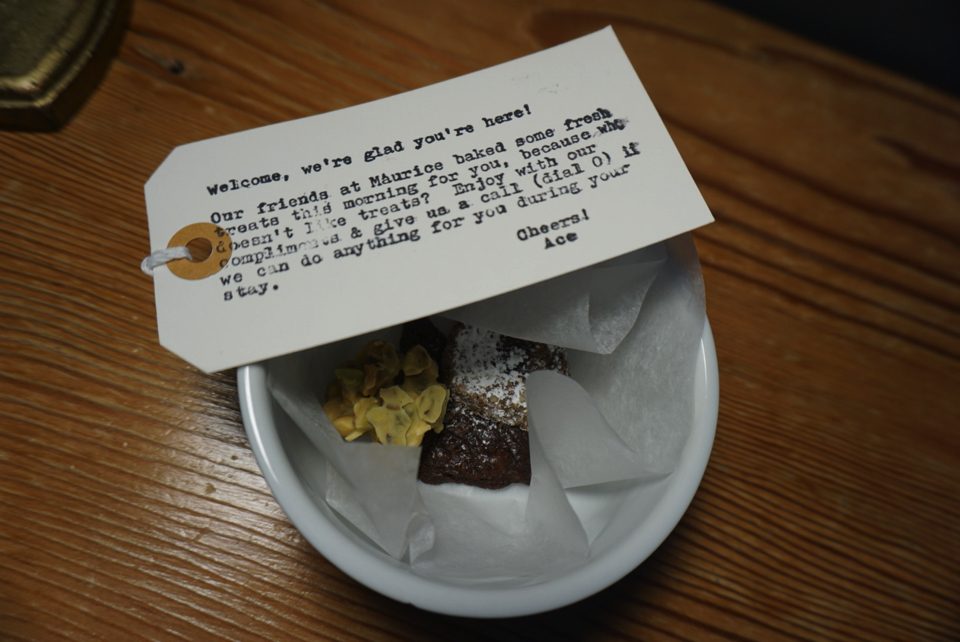 Welcome, we're glad you're here!
Our friends at Maurice baked some fresh
treats this morning for you, because who
doesn't like treats? Enjoy with our
compliments & give us a call (dial 0) if
we can do anything for you during your
stay.
Cheers!
Ace